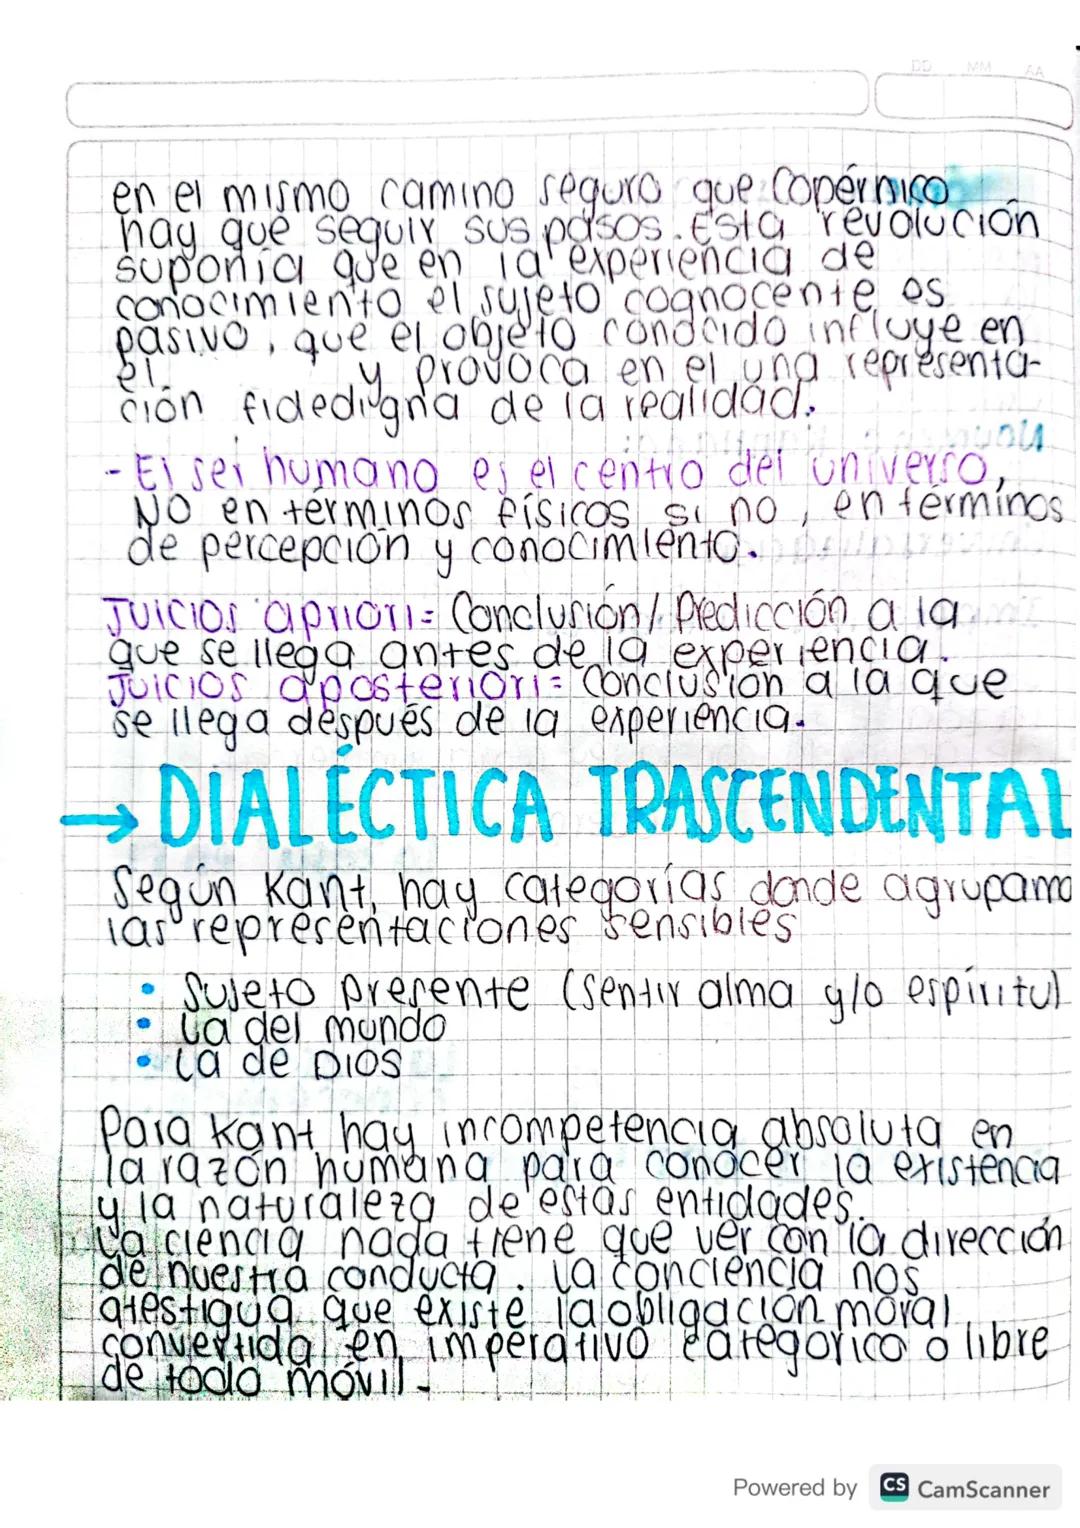 DD MM AA
en el mismo camino seguro que Copérnico
hay que seguir sus pasos. Esta revolución
suponía que en la experiencia de
conocimiento el sujeto cognocente es
pasivo, que el objeto conocido influye en
el y provoca en el una representa-
ción fidedigna de la realidad.
- El ser humano es el centro del universo,
NO en términos físicos si no, en términos
de percepción y conocimiento.
Juicios apriori= Conclusión/Predicción a la
que se llega antes de la experiencia.
Juicios aposteriori= Conclusión a la que
se llega después de la experiencia.
→ DIALÉCTICA TRASCENDENTAL
Según Kant, hay categorías donde agrupamo
las representaciones sensibles
• Sujeto presente (sentir alma y/o espíritu)
• La del mundo
• La de Dios
Para Kant hay incompetencia absoluta en
la razón humana para conocer la existencia
y la naturaleza de estas entidades.
La ciencia nada tiene que ver con la dirección
de nuestra conducta. La conciencia nos
atestigua que existe la obligación moral
convertida en imperativo categorico o libre
de todo móvil.
Powered by CS CamScanner